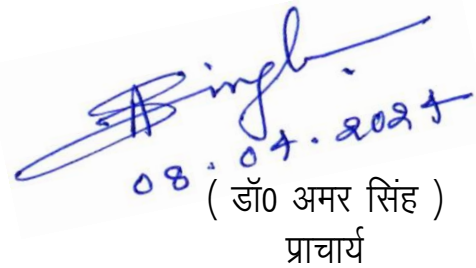 ASingh.
08.04.2024
( डॉ0 अमर सिंह )
प्राचार्य